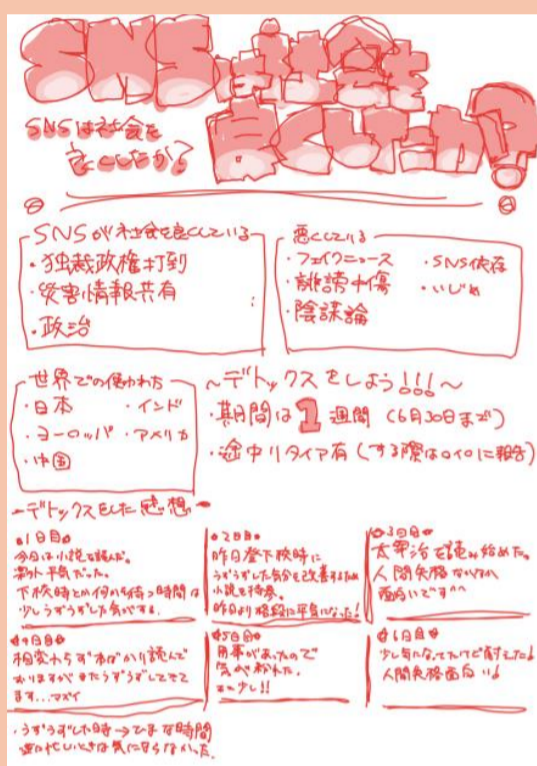 SNSは社会を
良くしたか?
SNSは社会を
良くしたか?
SNSが社会を良くしている
・独裁政権打倒
・災害情報共有
・政治
悪くしている
・フェイクニュース
・SNS依存
・誹謗中傷
・いじめ
・陰謀論
世界での使われ方
・日本
・インド
・ヨーロッパ
・アメリカ
・中国
~デトックスをしよう!!!~
・期間は1週間(6月30日まで)
・途中リタイア有(する際はロイロに報告)
デトックスをした感想
1日目
今日は小説を読んだ。
案外平気だった。
下校時とか何かを待つ時間は
少しうずうずした気がする。
2日目
昨日登下校時に
うずうずした気分を改善するため
小説を持参。
昨日より格段に平気になった!
3日目
太宰治を読み始めた。
人間失格なかなか
面白いです^^
4日目
相変わらず本ばかり読んで
おりますがまたうずうずしてきて
ます...マズイ
5日目
用事があったので
気が紛れた。
あと少し!!
6日目
少し気になってたけど耐えした!
人間失格面白い!
・うずうずした時→ひまな時間
逆に忙しいときは気にならなかった。